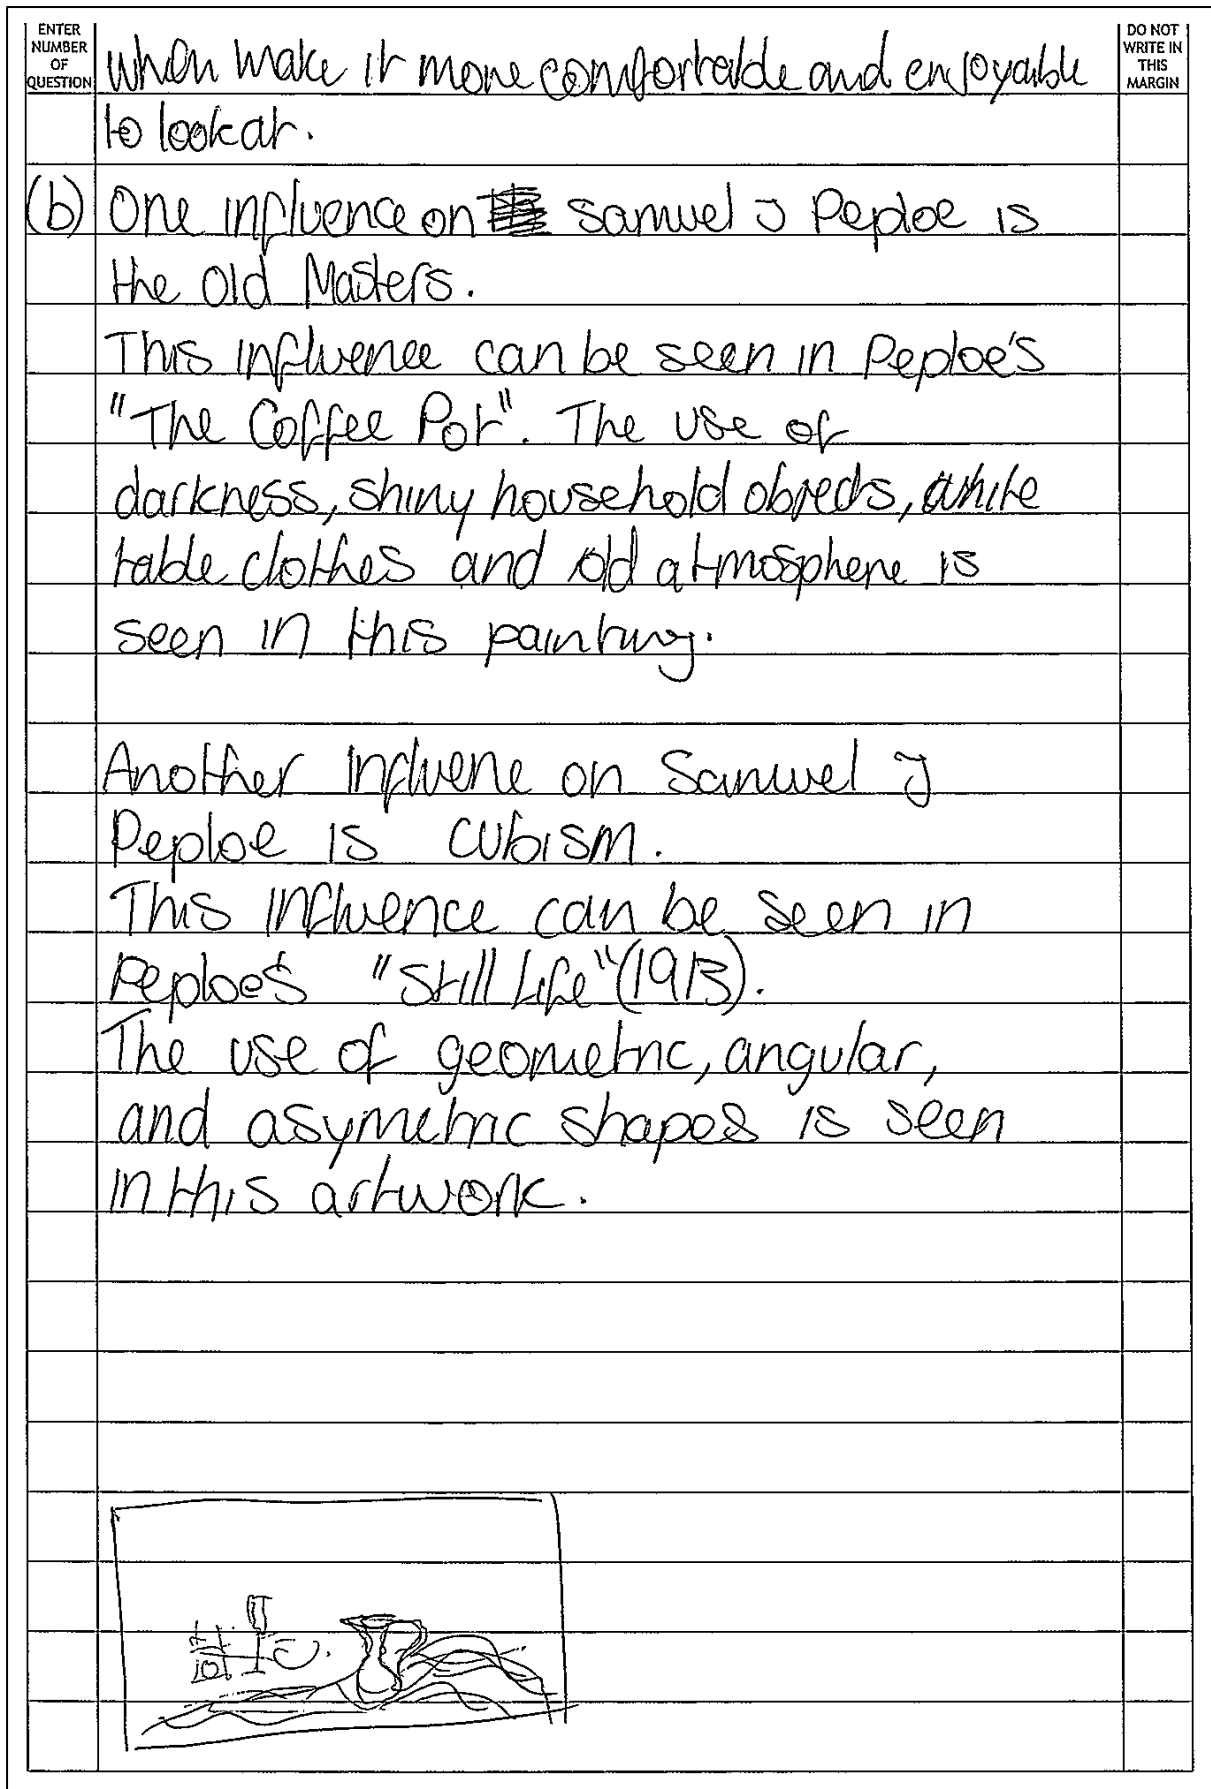 ENTER
NUMBER
OF
QUESTION
DO NOT
WRITE IN
THIS
MARGIN
when make it more comfortable and enjoyable
to look at.
(b) One influence on Samuel J Peploe is
the Old Masters.
This influence can be seen in Peploe's
"The Coffee Pot". The use of
darkness, shiny household objects, white
table clothes and old atmosphere is
seen in this painting.
Another influene on Samuel J
Peploe is cubism.
This influence can be seen in
Peploe's "Still Life" (1913).
The use of geometric, angular,
and asymetric shapes is seen
in this artwork.